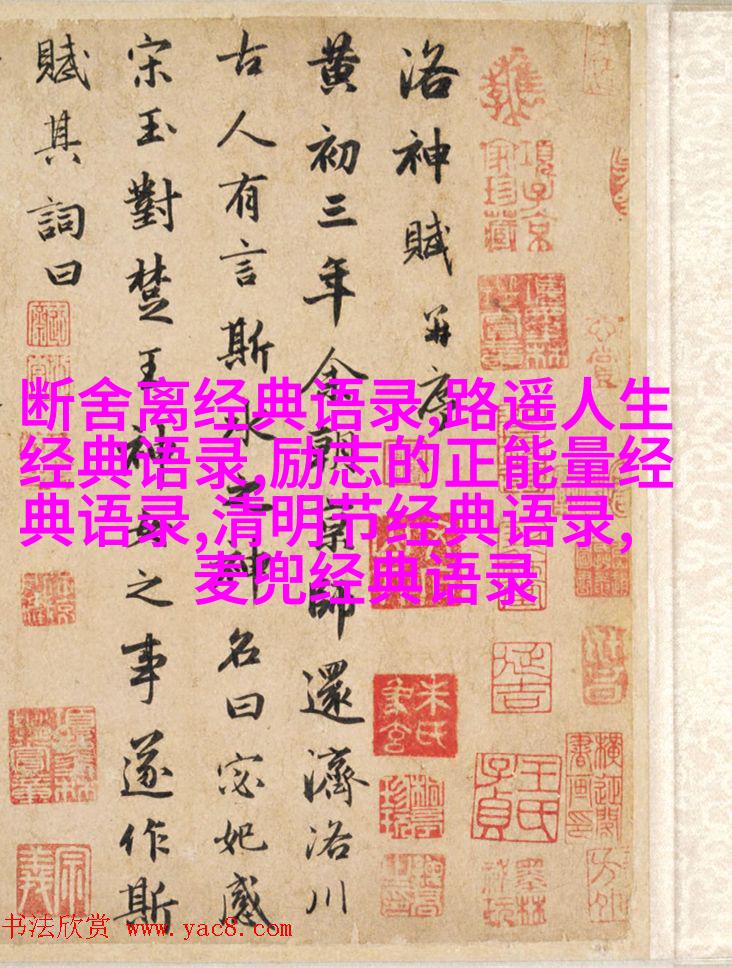 洛神賦并序
黄初三年余朝京師還濟洛川
古人有言斯水之神名曰宓妃感
宋玉對楚王神女之事遂作斯
賦其詞曰
断舍离经典语录,路遥人生
经典语录,励志的正能量经
典语录,清明节经典语录,
麦兜经典语录
項子京
家珍藏
书法欣赏 www.yac8.com